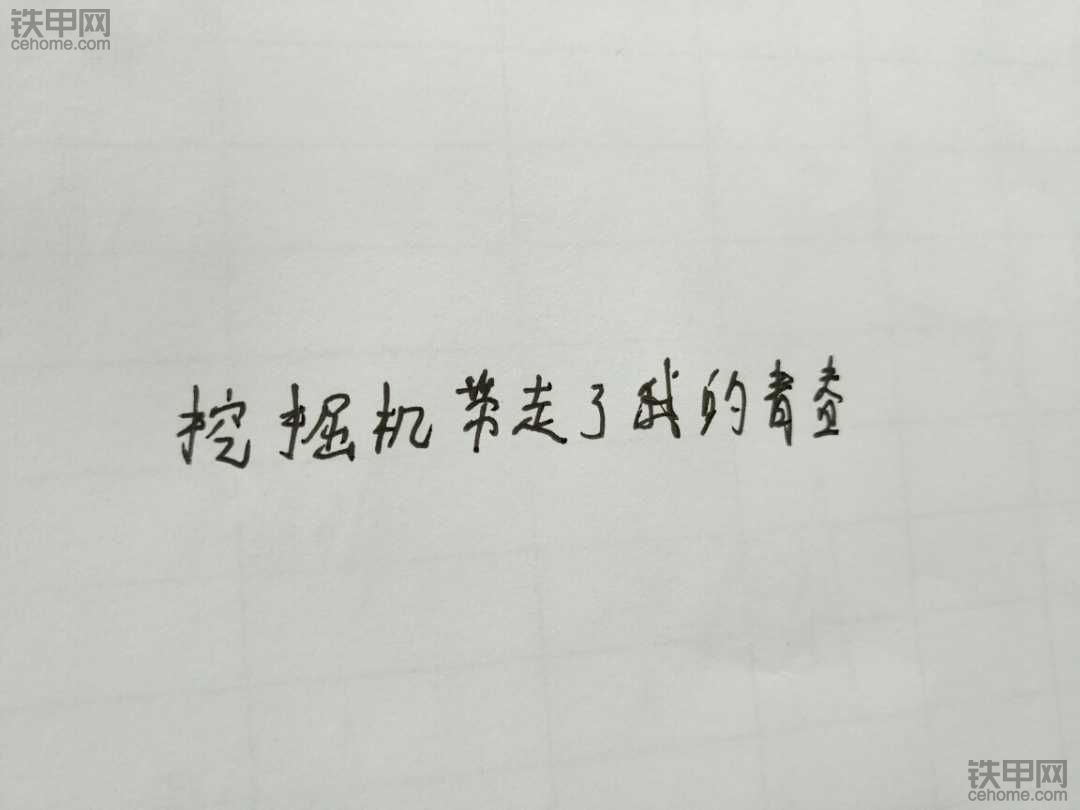 铁甲网
cehome.com
挖掘机带走了我的青春
铁甲网
cehome.com